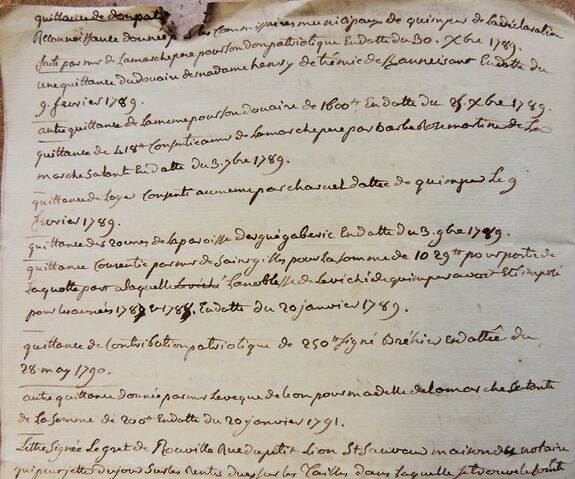 quittance de don pat
Reconnoissance donnée les Commissaires municipaux de quimper de la déclaration
faite par mr de Lamarche pere pour son don patriotique En datte du 30. Xbre 1789.
une quittance du douaire de madame henry de En datte du
9. fevrier 1789.
autre quittance de la meme pour son douaire de 1600# En datte du Xbre 1789.
quittance de 418# Consentie a mr de Lamarche pere par Barbe Roze martine de La
marche sa tant En datte du 3. 9bre 1789.
quittance de Loyer Consenti au meme par charuel dattée de quimper Le 9
fevrier 1789.
quittance des 20 de la paroisse d'erguégaberic En datte du 3. 9bre 1789.
quittance Consentie par mr de Saingilles pour la somme de 1029# pour portie de
la quotte part a laquelle La noblesse de L'evéché de quimper avoit été imposé
pour les années 1787 et 1788. En datte du 20 janvier 1789.
quittance de Contribution patriotique de 250# signé Bréhier En dattée du
28. may 1790.
autre quittance donnée par mr L'eveque de Leon pour madelle de la marche sa tante
de la somme de 200# En datte du 20 janvier 1791.
Lettre signée Le gret de Rouville Rue du petit Lion St Sauveur maison du notaire
qui jour sur les Rentes dues sur les Tailles dans laquelle